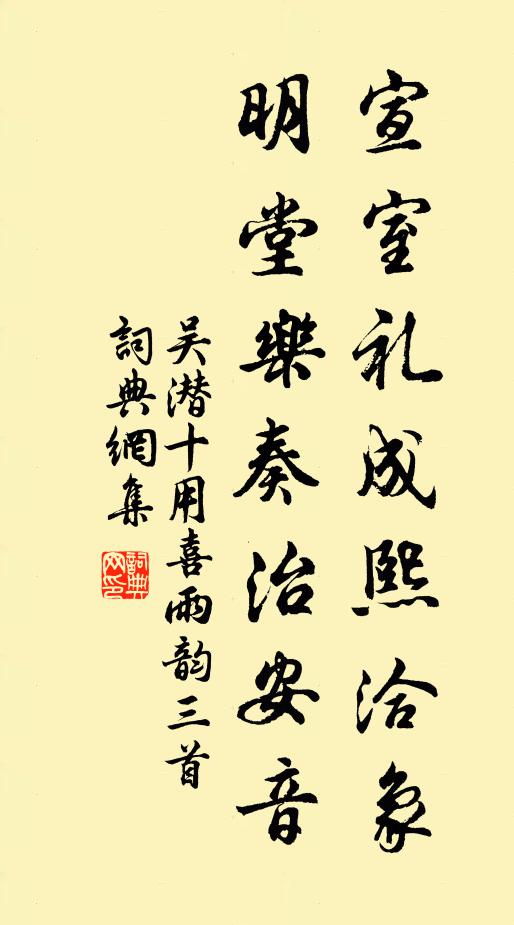 宣室礼成熙洽象
明堂樂奏治安音
吴潜十用喜雨韵三首
詞典網集
詞典網印